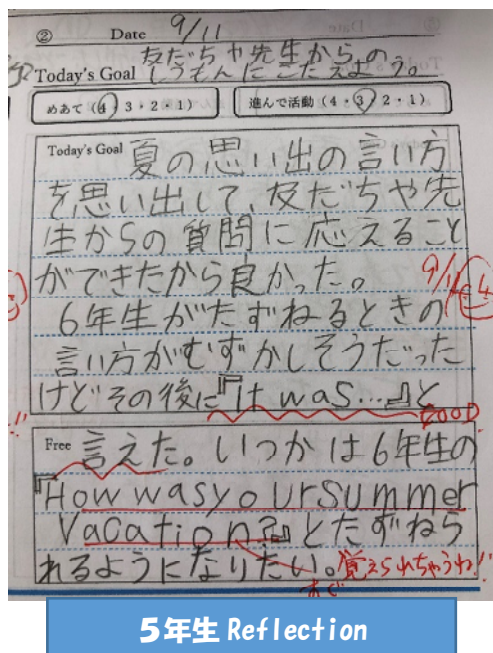 ② Date 9/11
友だちや先生からの
Today's Goal しつもんにこたえよう。
めあて（4・3・2・1） 進んで活動（4・3・2・1）
Today's Goal 夏の思い出の言い方
を思い出して、友だちや先
生からの質問に応えること
ができたから良かった。
9/11 4
6年生がたずねるときの
言い方がむずかしそうだった
けどその後に『It was...』と
GOOD
Free 言えた。いつかは6年生の
『How was your summer
Vacation?』とたずねら
れるようになりたい。覚えられちゃうね!!
5年生 Reflection